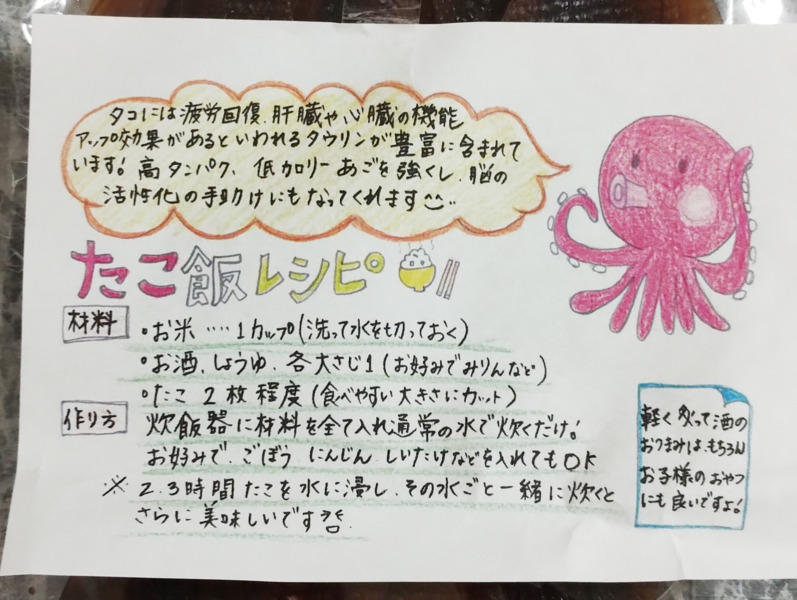 タコには疲労回復、肝臓や心臓の機能
アップ効果があるといわれるタウリンが豊富に含まれて
います!高タンパク、低カロリーあごを強くし、脳の
活性化の手助けにもなってくれます
たこ飯レシピ
材料
・お米‥‥1カップ(洗って水を切っておく)
・お酒、しょうゆ、各大さじ1(お好みでみりんなど)
・たこ 2枚程度(食べやすい大きさにカット)
作り方
炊飯器に材料を全て入れ通常の水で炊くだけ!
お好みで、ごぼう にんじん しいたけなどを入れてもOK
※2.3時間たこを水に浸し、その水ごと一緒に炊くと
さらに美味しいです
軽く炙って酒の
おつまみは、もちろん
お子様のおやつ
にも良いですよ!